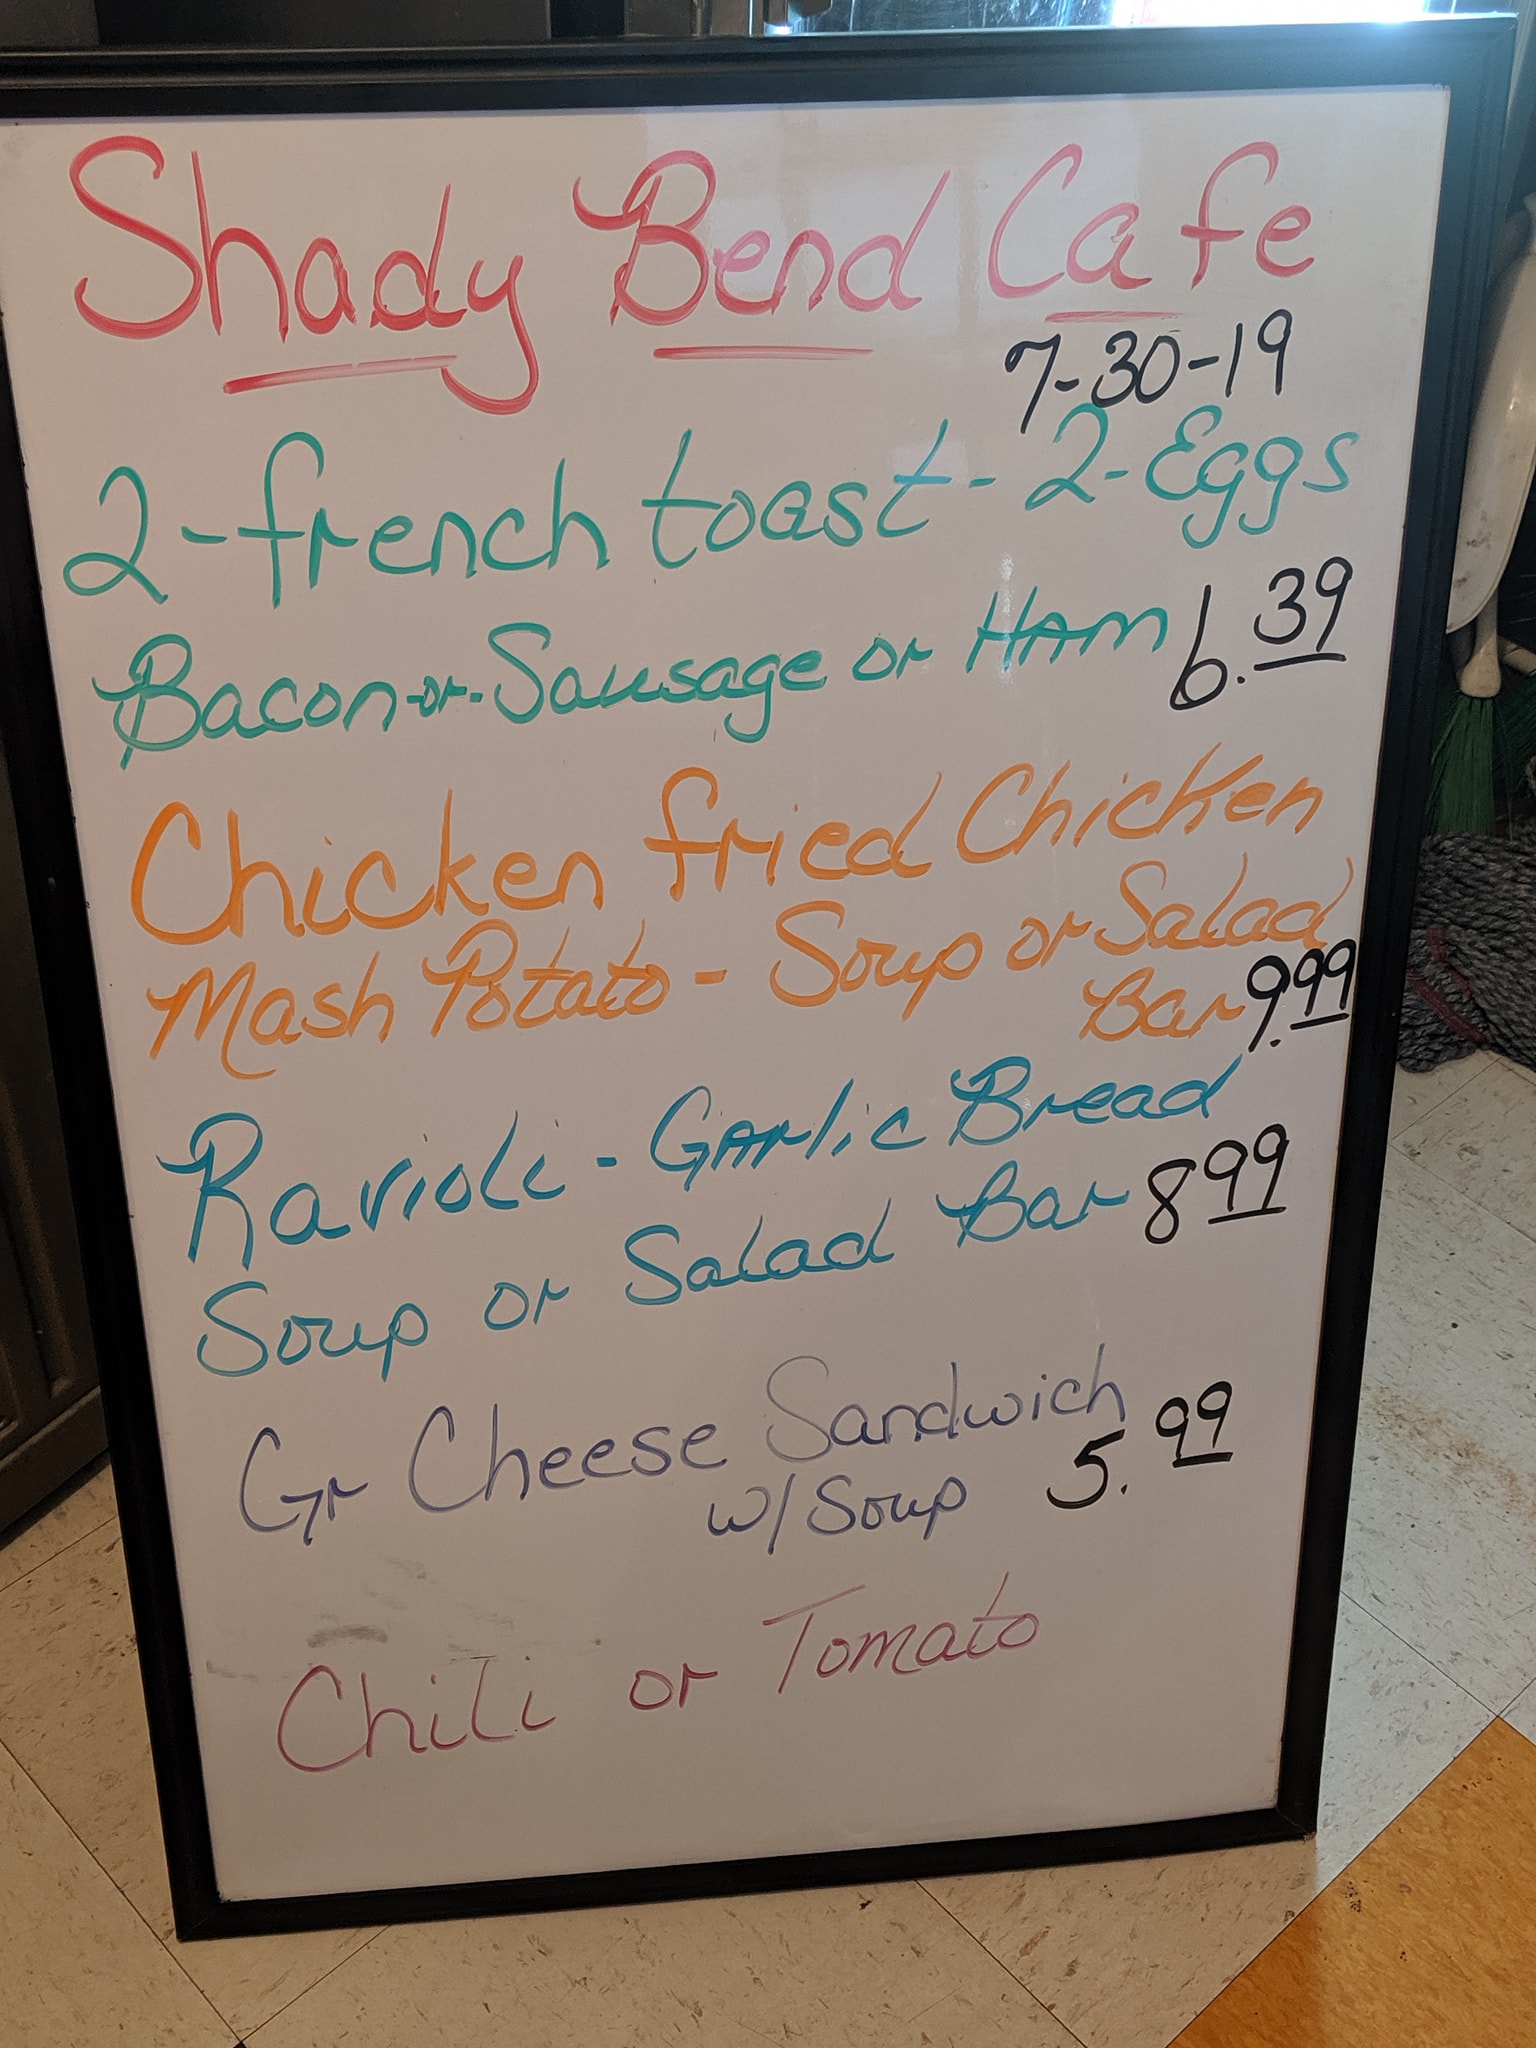 Shady Bend Cafe
7-30-19
2-french toast - 2-Eggs
Bacon-or-Sausage or HAM 6.39
Chicken fried Chicken
Mash Potato - Soup or Salad
Bar 9.99
Ravioli - GARlic Bread
Soup or Salad Bar 8 99
Gr Cheese Sandwich
w/ Soup 5.99
Chili or Tomato